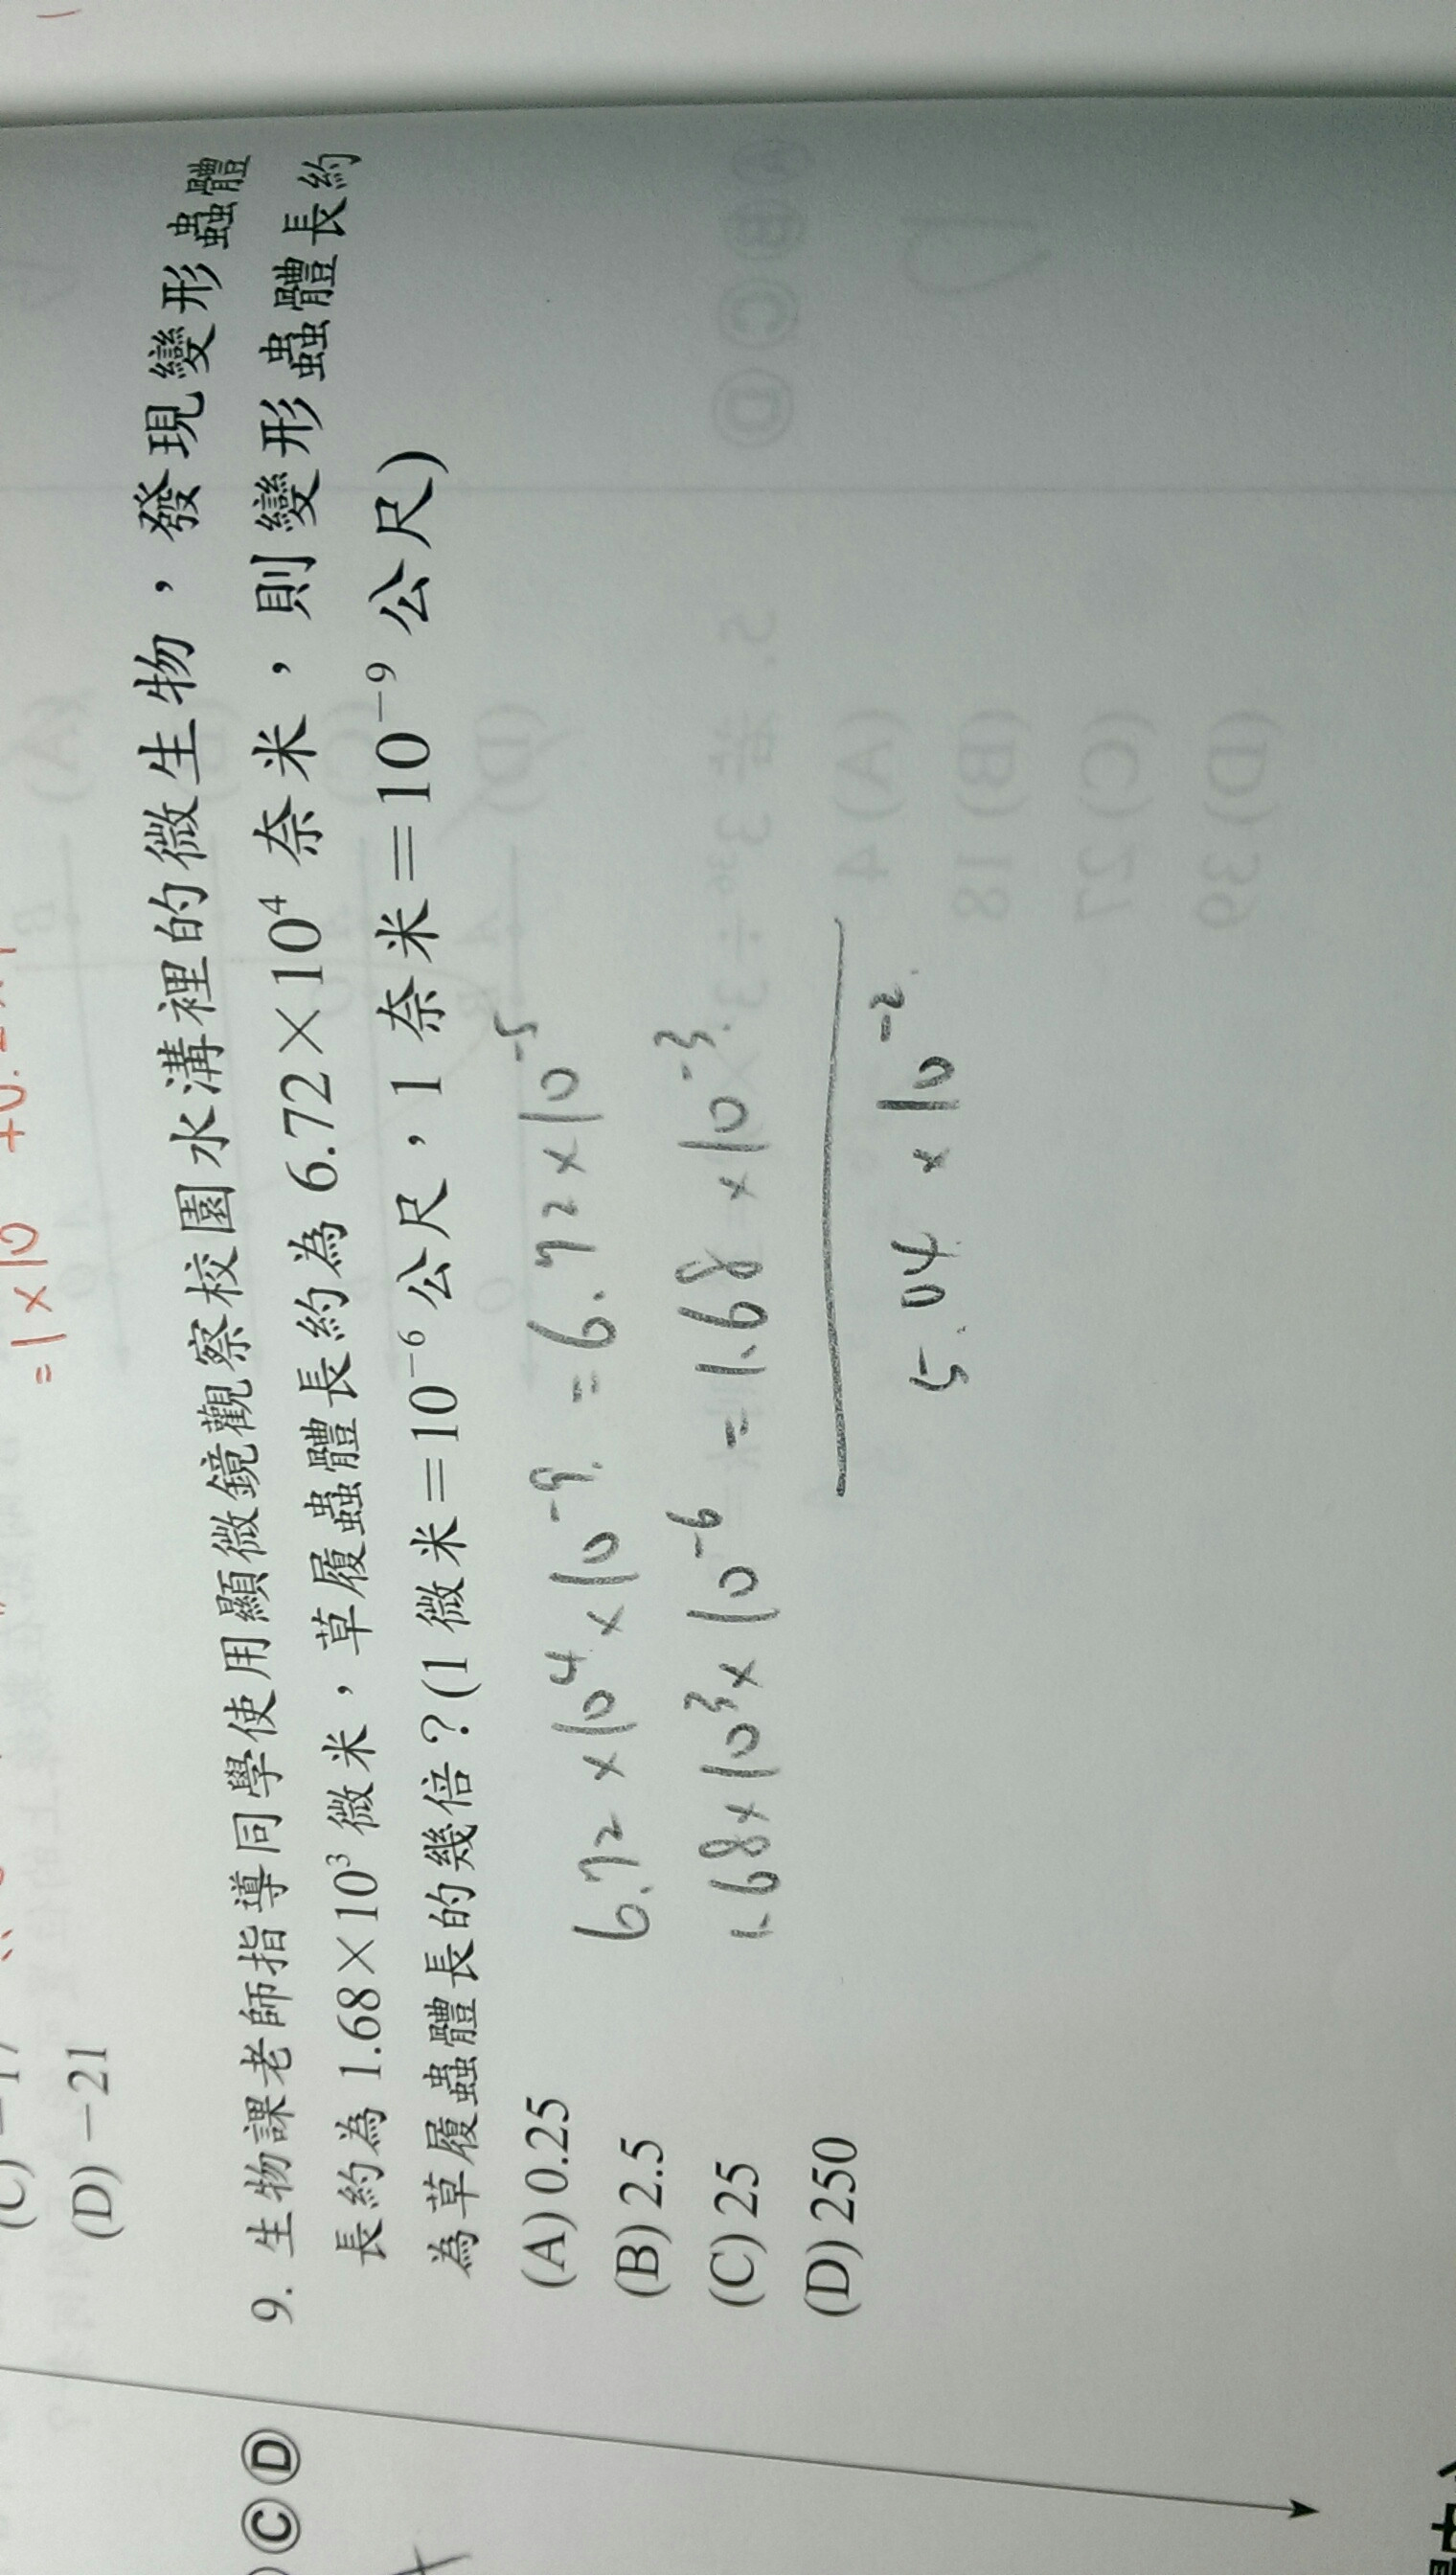 = 1 × 10
(D) −21
9. 生物課老師指導同學使用顯微鏡觀察校園水溝裡的微生物，發現變形蟲體
長約為 1.68×10³ 微米，草履蟲體長約為 6.72×10⁴ 奈米，則變形蟲體長約
為草履蟲體長的幾倍？(1 微米＝10⁻⁶ 公尺，1 奈米＝10⁻⁹ 公尺)
(A) 0.25
(B) 2.5
(C) 25
(D) 250
6.72 × 10⁴ × 10⁻⁹ = 6.72 × 10⁻⁵
1.68 × 10³ × 10⁻⁶ = 1.68 × 10⁻³
5.04 × 10⁻²
Ⓒ Ⓓ